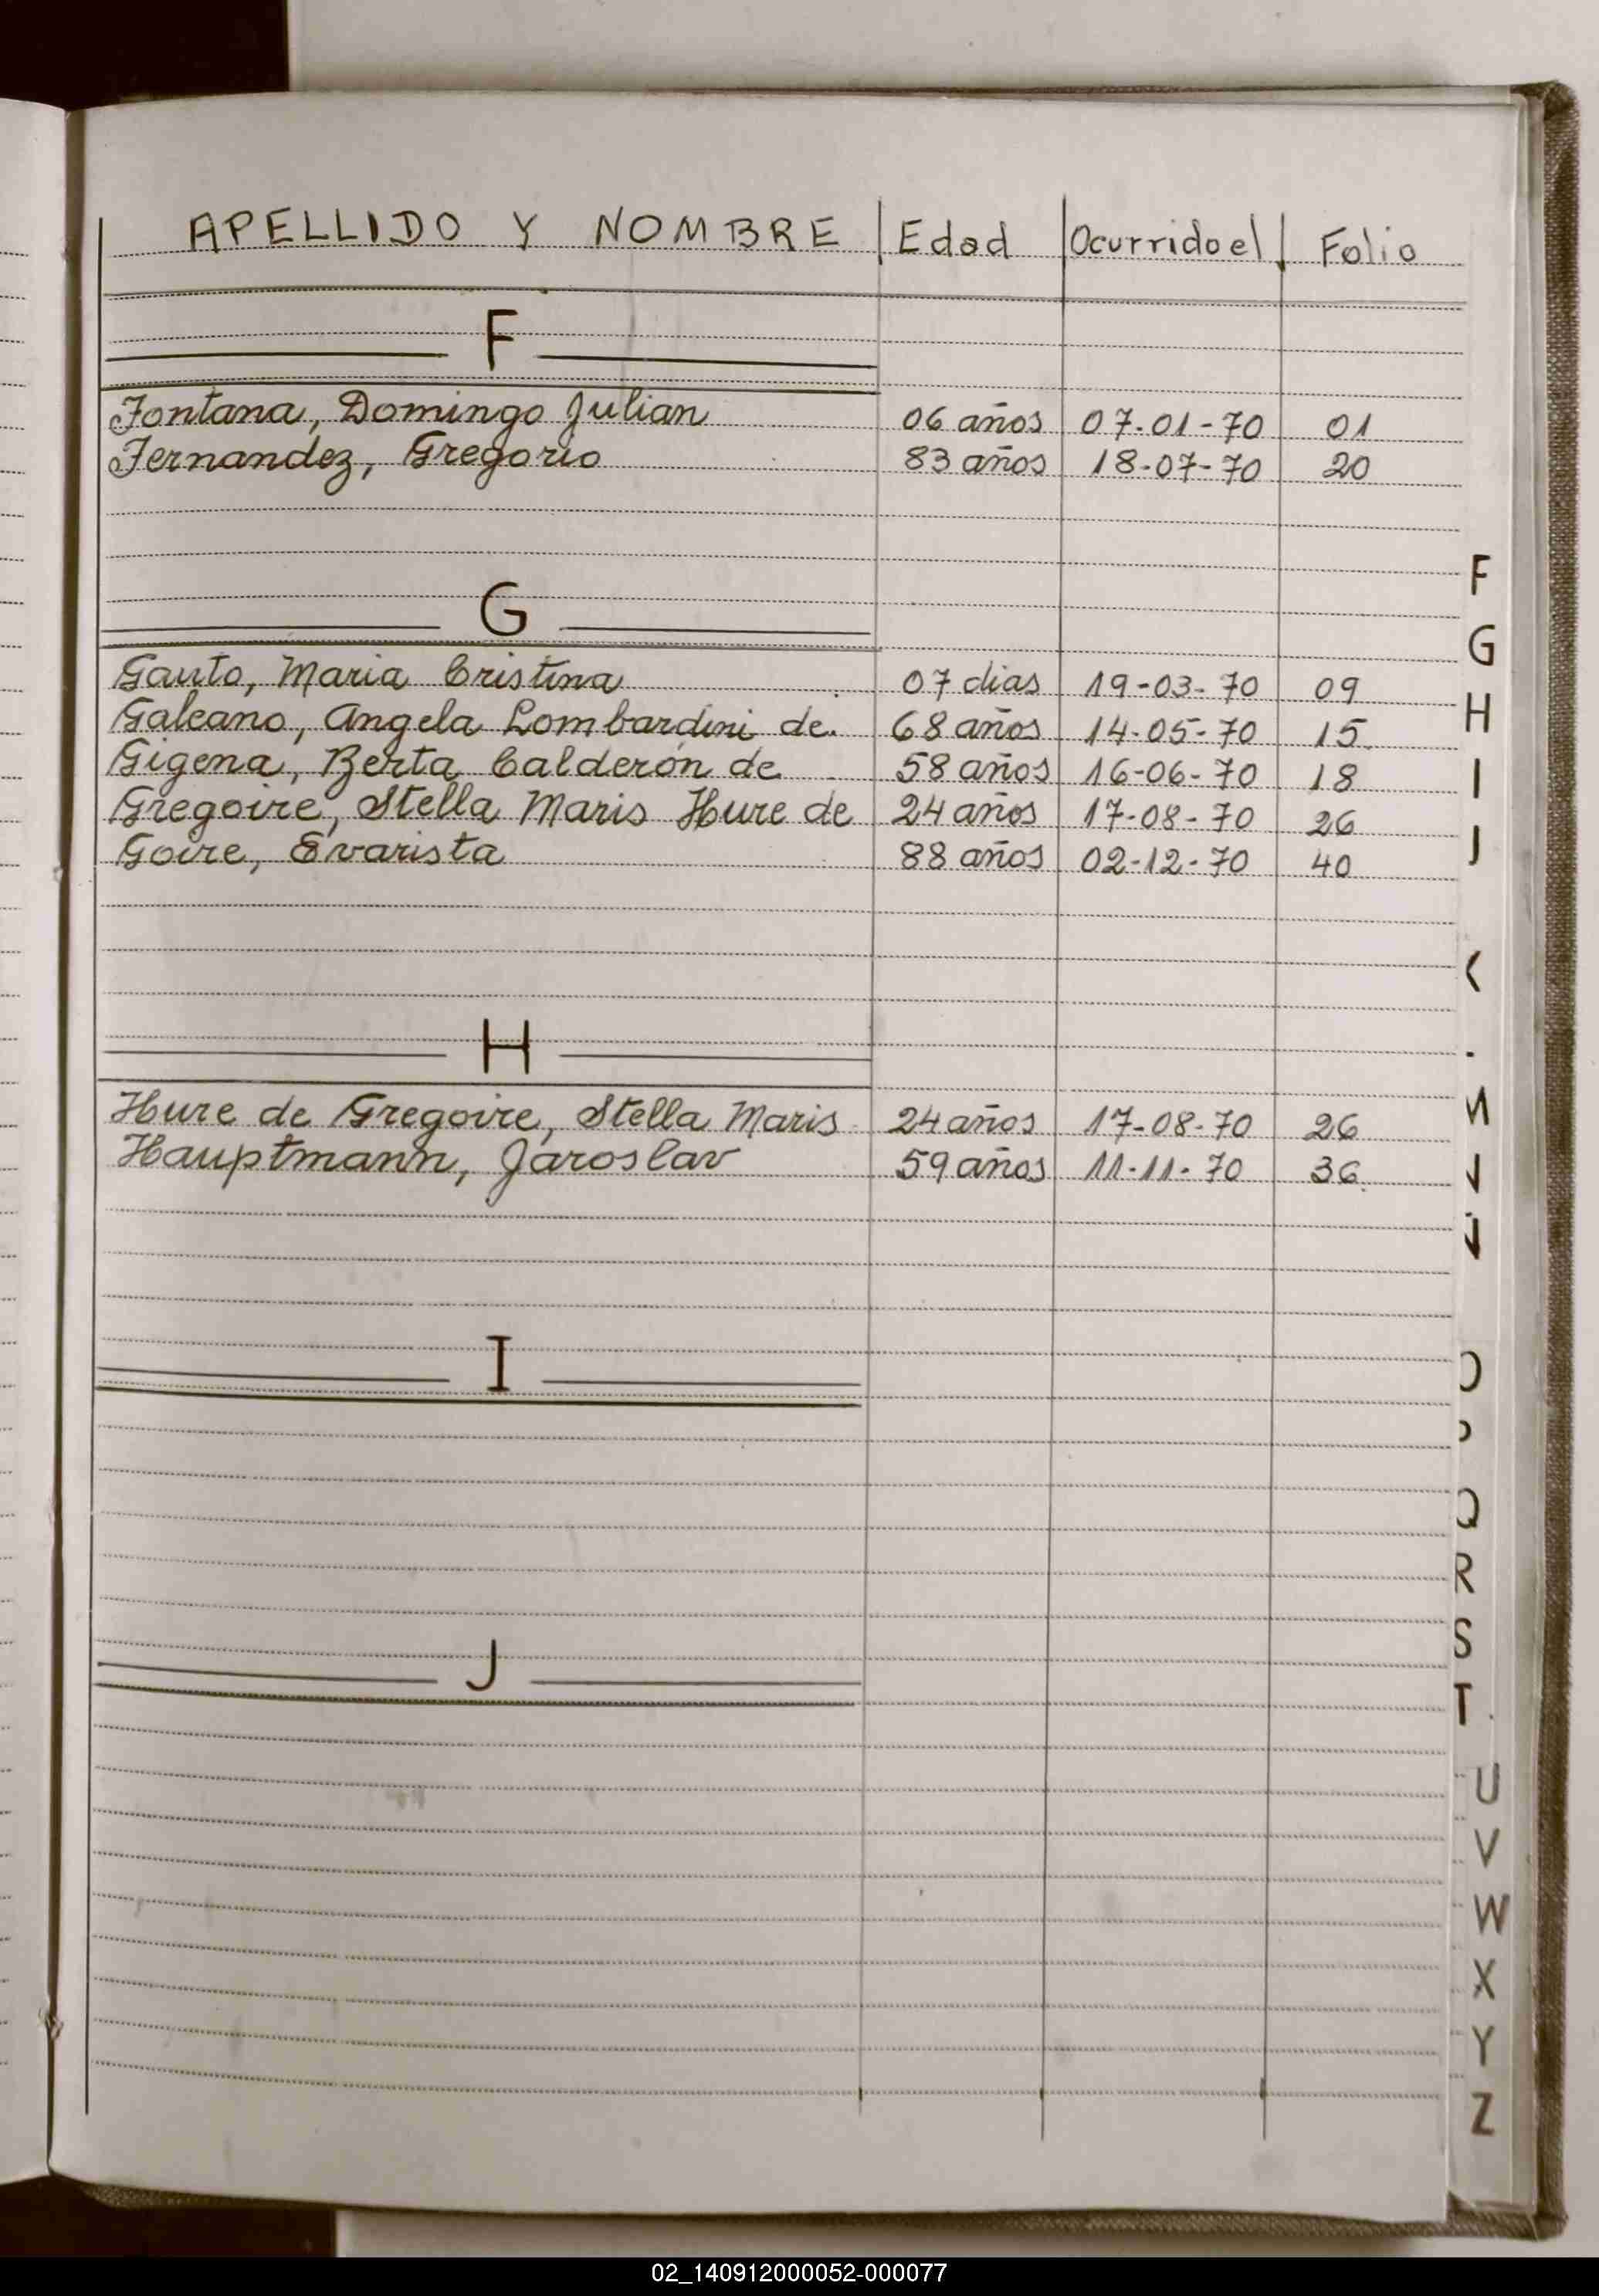 APELLIDO Y NOMBRE Edad Ocurrido el Folio
F
Fontana, Domingo Julian 06 años 07-01-70 01
Fernandez, Gregorio 83 años 18-07-70 20
G
Gauto, Maria Cristina 07 dias 19-03-70 09
Galeano, Angela Lombardini de. 68 años 14-05-70 15
Gigena, Berta Calderón de 58 años 16-06-70 18
Gregoire, Stella Maris Hure de 24 años 17-08-70 26
Goire, Evarista 88 años 02-12-70 40
H
Hure de Gregoire, Stella Maris 24 años 17-08-70 26
Hauptmann, Jaroslav 59 años 11-11-70 36
I
J
F
G
H
I
J
Q
R
S
T
U
V
W
X
Y
Z
02_140912000052-000077